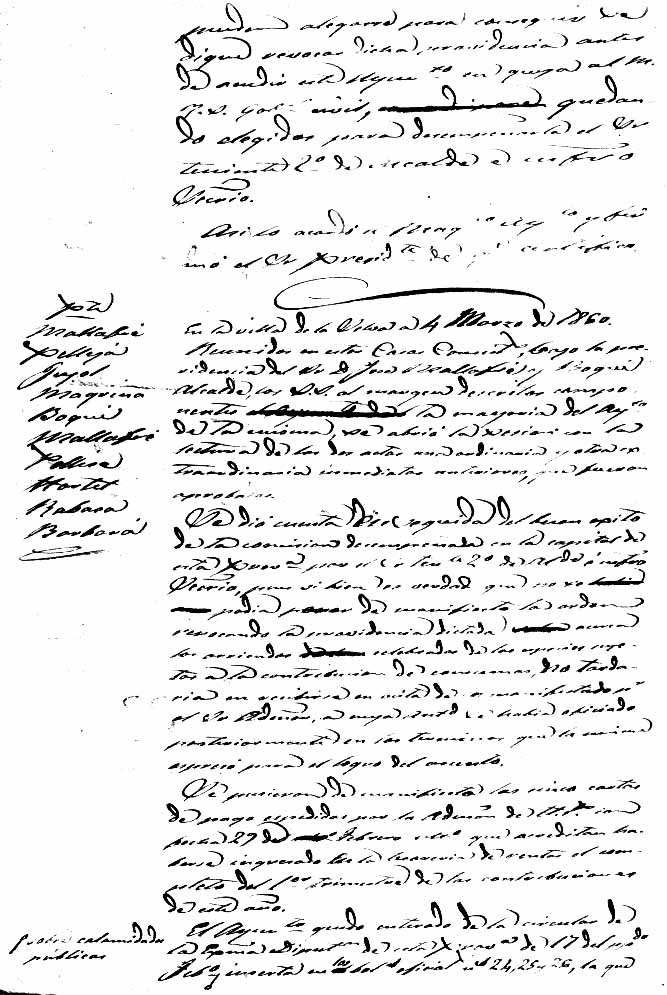 puedan alegarse para conseguir se
digne revocar dicha providencia antes
de acudir este Ayunto en queja al M.
I. S. Gobr civil, quedan
do elegidos para desempeñarla el Sr
teniente 2º de Alcalde e infro
Secrio.
Asi lo acordó el Ayto y fir
mó el Sr Presidte de qe certifico.
Pte
Mallafré
Pellejá
Gujol
Magriñá
Boqué
Mallafré
Pallisa
Hortet
Rabasa
Barbará
En la villa de la Selva a 4 Marzo de 1860.
Reunidos en esta Casa Consistl, bajo la pre
sidencia del Sr D José Mallafré y Boqué
Alcalde, los S.S. al margen descritos compo
nentes la mayoria del Ayto
de la misma, se abrió la sesion con la
lectura de las dos actas una ordinaria y otra ex
traordinaria inmediatas anteriores, que fueron
aprobadas.
Se dió cuenta en seguida del buen exito
de la comision desempeñada en la capital de
esta Prova por el Sr tente 2º de Alde é infro
Secrio, pues si bien es verdad que no se
podia poner de manifiesto la orden
revocando la providencia dictada acerca
los arriendos celebrados de las especies suje-
tas a la contribucion de consumos, no tarda-
ria en recibirse en vista de lo manifestado pr
el Sr Admor, a cuya Autd se habia oficiado
posteriormente en los terminos que la misma
espresó para el logro del asunto.
Se pusieron de manifiesto las cinco cartas
de pago espedidas por la Admon de H. Pª con
fecha 27 de Febrero ulto que acreditan ha-
berse ingresado en la tesoreria de rentas el com-
pleto del 1er trimestre de las contribuciones
de este año.
sobre calamidades
públicas
El Ayunto quedó enterado de la circular de
la Exma Diputon de esta Prova de 17 del ppdo
Febº inserta en los bols oficial nos 24, 25 y 26, la que